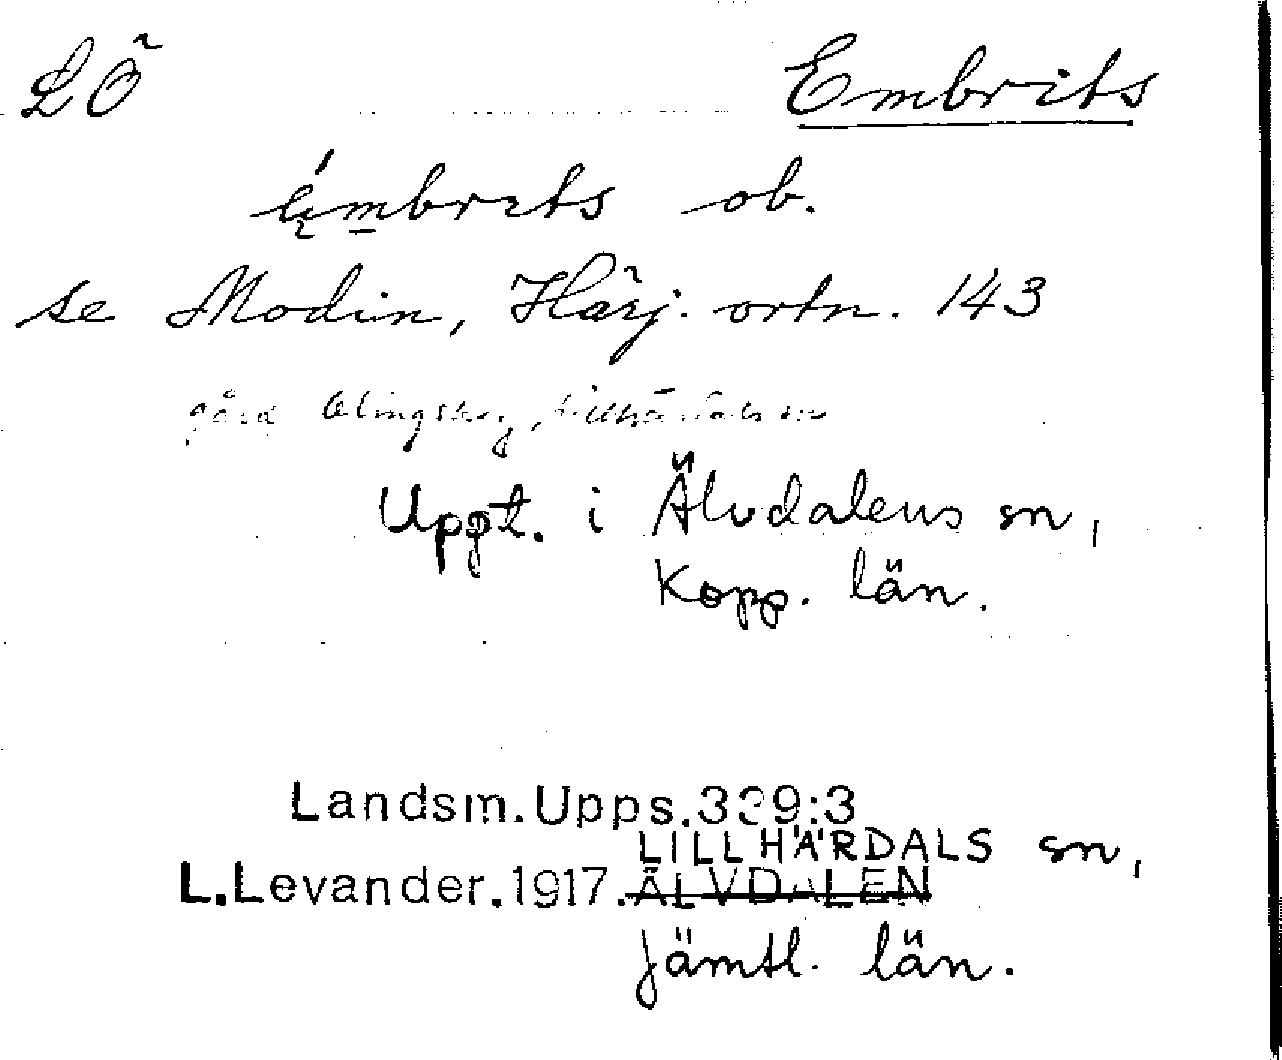 LÖ Embrits
émbrits ob.
se Modin, Härj. ortn. 143
gård Olingskog, Lillhärdals sn
Uppt. i Älvdalens sn,
Kopp. län.
Landsm.Upps.339:3
LILLHÄRDALS sn,
L.Levander.1917.ÄLVDALEN
Jämtl. län.